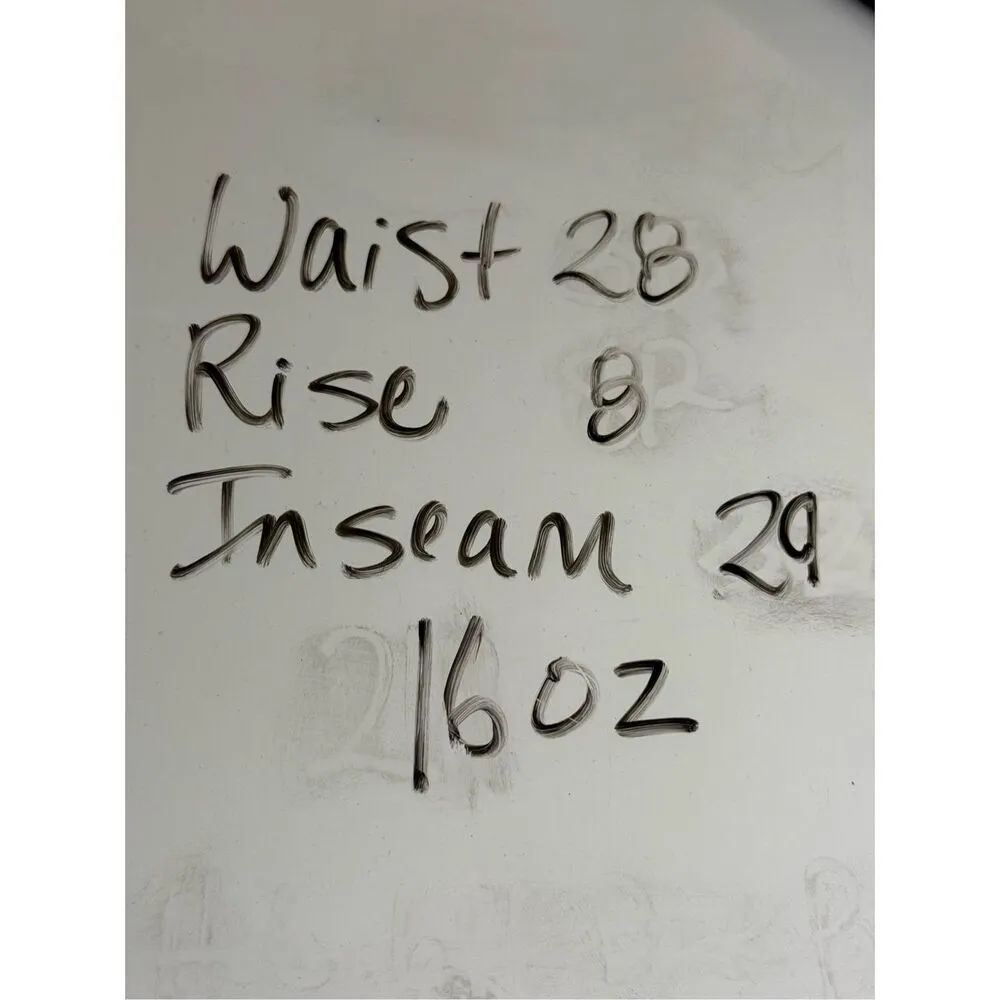 Waist 28
Rise 8
Inseam 29
16oz